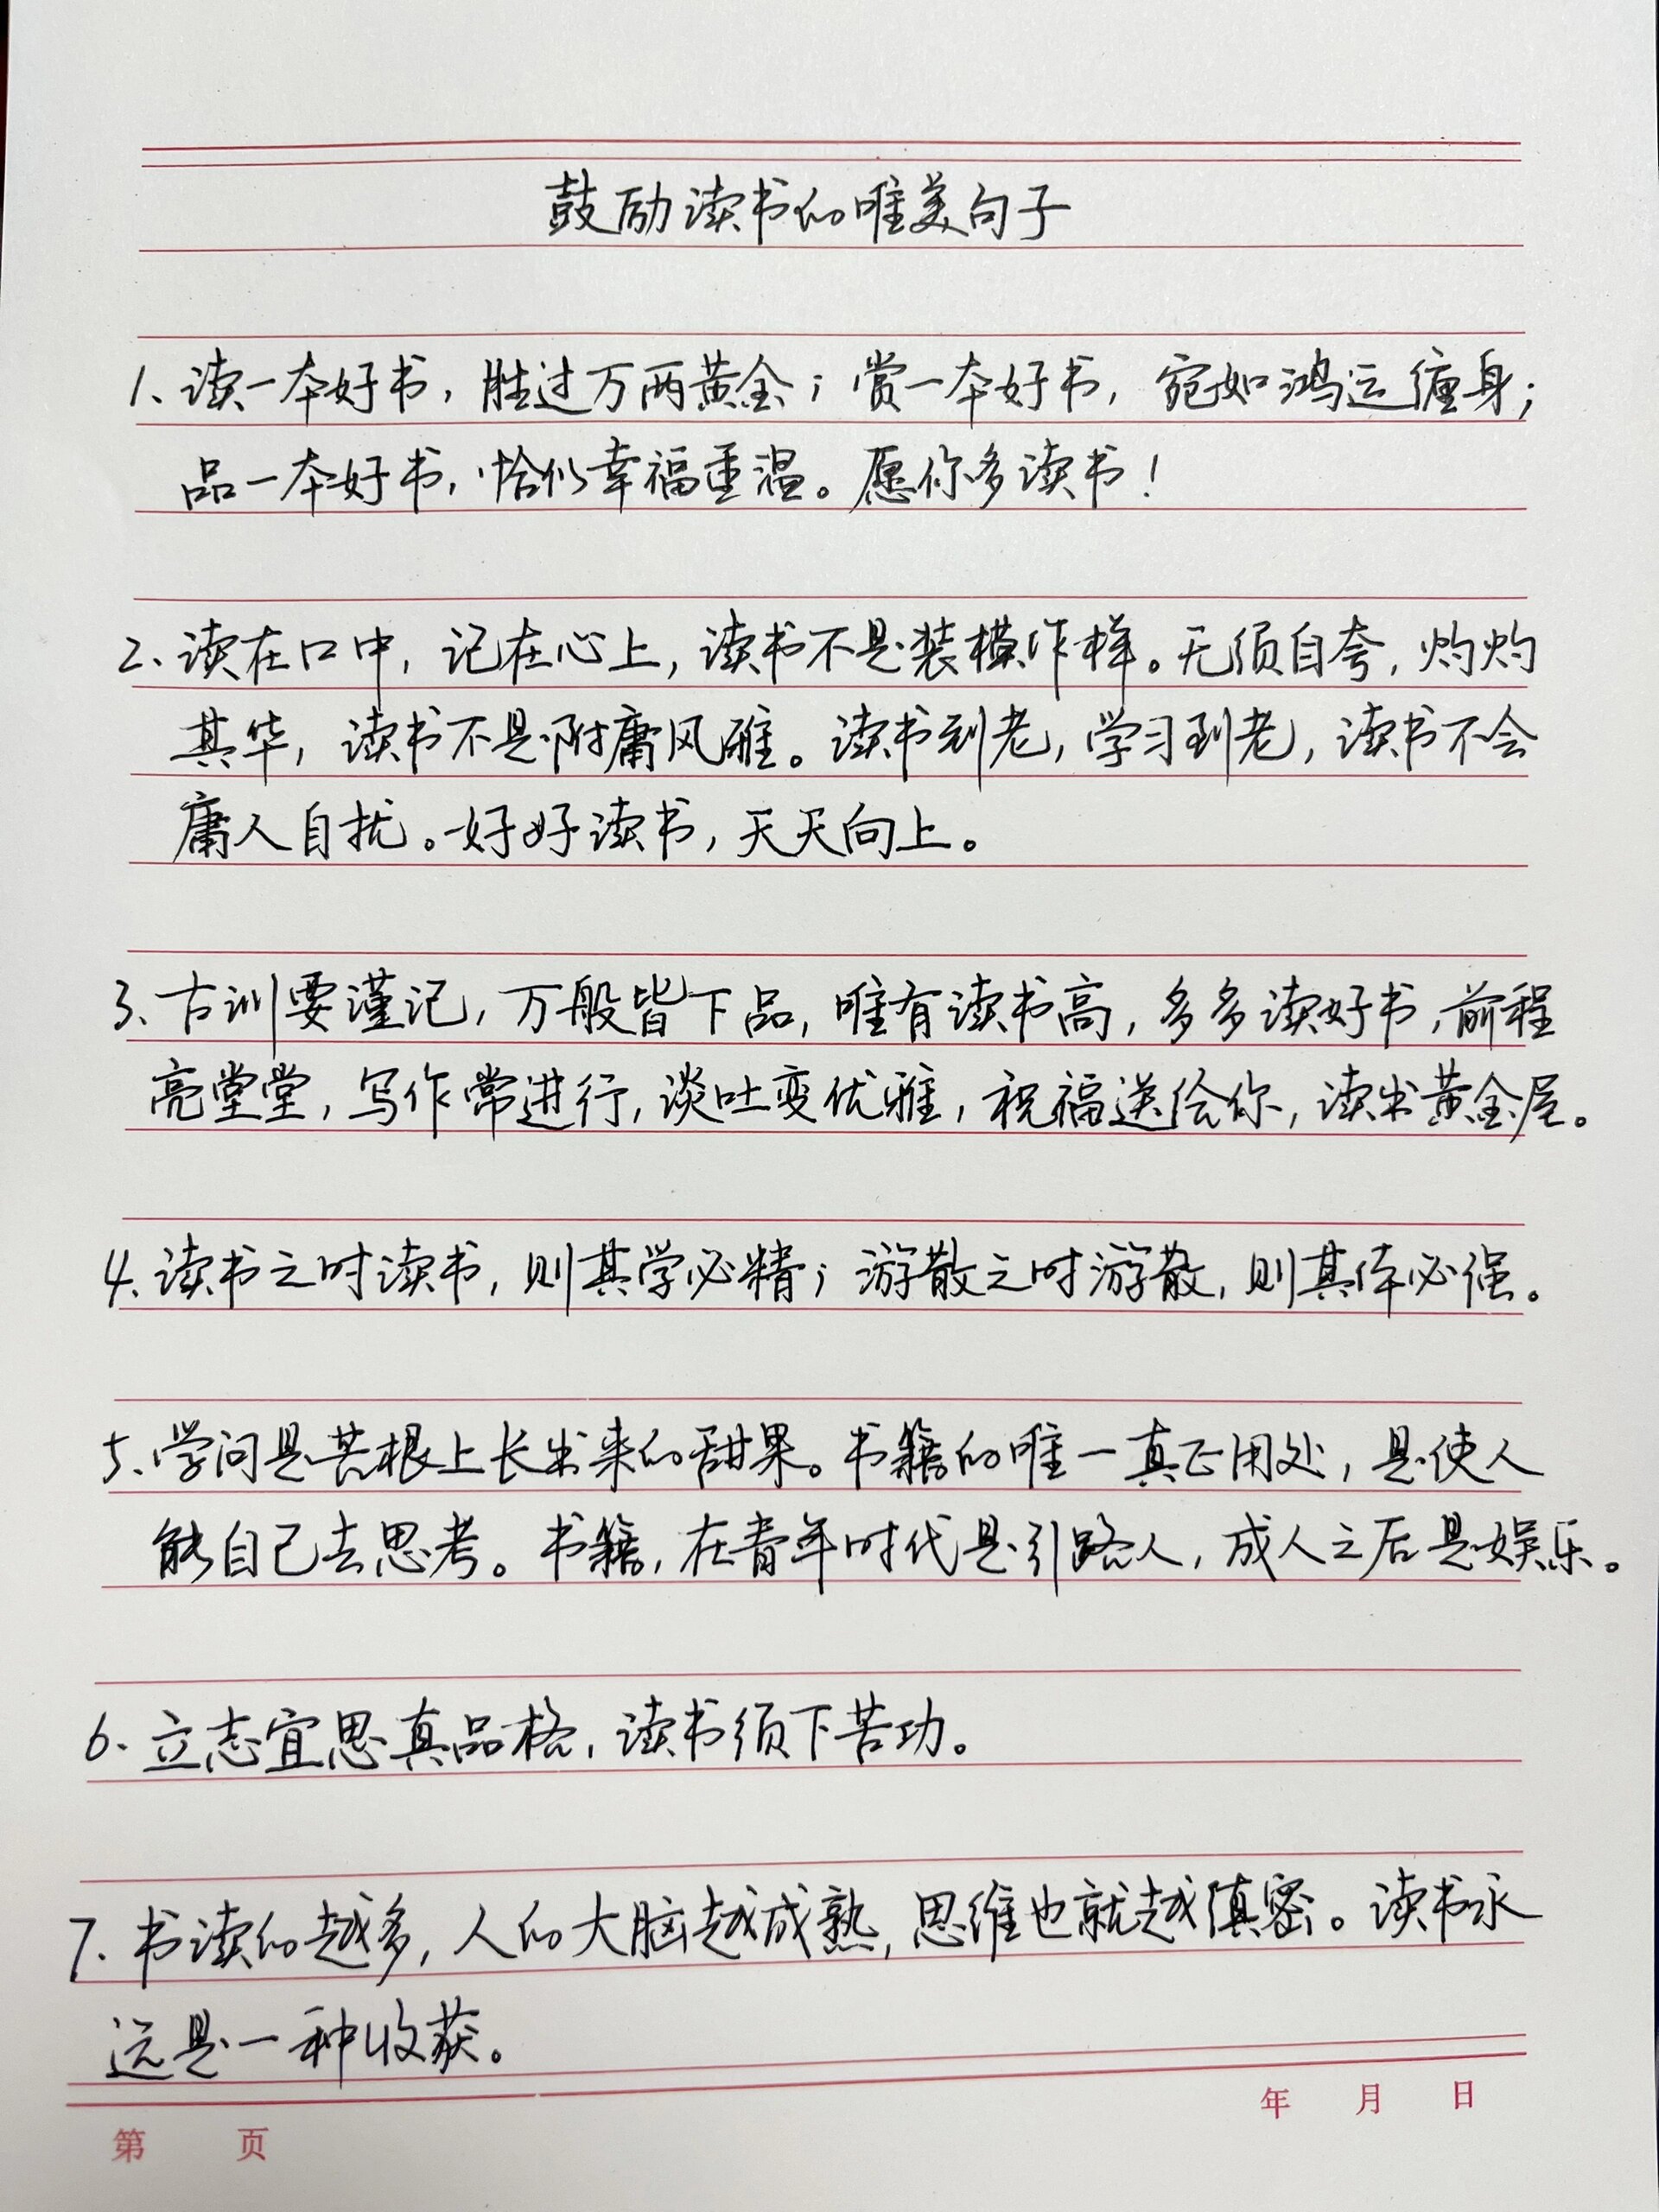 鼓励读书的唯美句子
1、读一本好书，胜过万两黄金；赏一本好书，宛如鸿运缠身；
品一本好书，恰似幸福重温。愿你多读书！
2、读在口中，记在心上，读书不是装模作样。无须自夸，灼灼
其华，读书不是附庸风雅。读书到老，学习到老，读书不会
庸人自扰。好好读书，天天向上。
3、古训要谨记，万般皆下品，唯有读书高，多多读好书，前程
亮堂堂，写作常进行，谈吐变优雅，祝福送给你，读出黄金屋。
4、读书之时读书，则其学必精；游散之时游散，则其体必强。
5、学问是苦根上长出来的甜果。书籍的唯一真正用处，是使人
能自己去思考。书籍，在青年时代是引路人，成人之后是娱乐。
6、立志宜思真品格，读书须下苦功。
7、书读的越多，人的大脑越成熟，思维也就越缜密。读书永
远是一种收获。
年 月 日
第 页